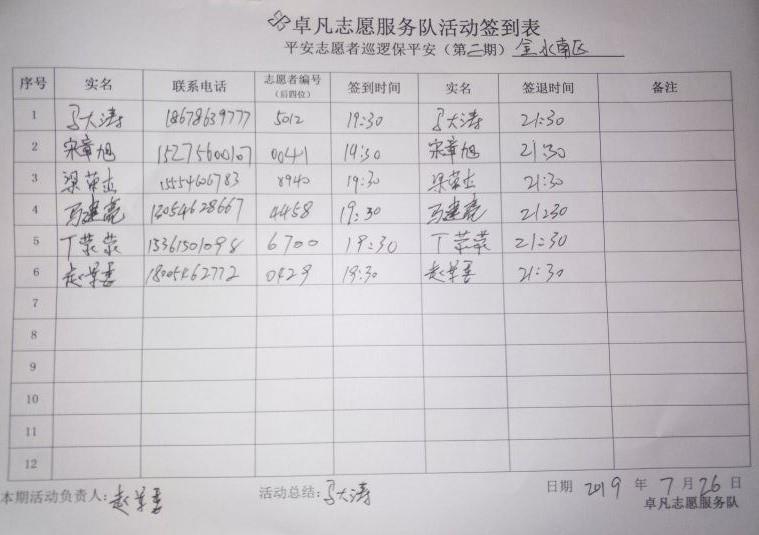 卓凡志愿服务队活动签到表
平安志愿者巡逻保平安（第二期）金水南区
序号 实名 联系电话 志愿者编号（后四位） 签到时间 实名 签退时间 备注
1 马大涛 18678639777 5012 19:30 马大涛 21:30
2 宋章旭 15275600107 0041 19:30 宋章旭 21:30
3 梁荣 15554606783 8940 19:30 梁荣 21:30
4 马建亮 13054628667 4458 19:30 马建亮 21:30
5 丁 15361501098 6700 19:30 丁 21:30
6 赵 18005462772 0429 19:30 赵 21:30
7
8
9
10
11
12
本期活动负责人:赵 活动总结:马大涛 日期 2019 年 7 月 26 日
卓凡志愿服务队